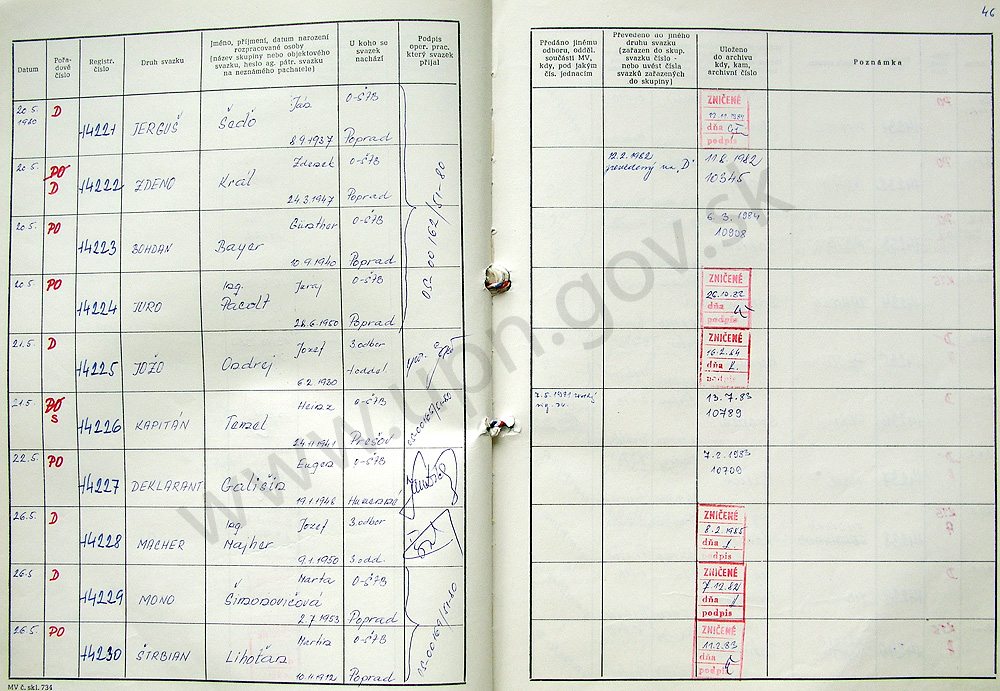 46
Datum
Pořadové číslo
Registr. číslo
Druh svazku
Jméno, příjmení, datum narození rozpracované osoby (název skupiny nebo objektového svazku, heslo ag. pátr. svazku na neznámého pachatele)
U koho se svazek nachází
Podpis oper. prac. který svazek přijal
Předáno jinému odboru, odděl. součásti MV, kdy, pod jakým čís. jednacím
Převedeno do jiného druhu svazku (zařazen do skup. svazku číslo - nebo uvést čísla svazků zařazených do skupiny)
Uloženo do archivu kdy, kam, archivní číslo
Poznámka
20.5. 1980 D 14221 JERGUŠ Šedo Ján 8.9.1937 O-ŠTB Poprad
ZNIČENÉ dňa podpis
20.5. PO D 14222 ZDENO Král Zdenek 24.3.1947 O-ŠTB Poprad
12.2.1982 prevedený na "D" 11.8.1982 10345
20.5. PO 14223 BOHDAN Bayer Günther 10.9.1940 O-ŠTB Poprad
6.3.1984 10908
20.5. PO 14224 JURO Pacolt Ing. Juraj 28.6.1950 O-ŠTB Poprad
ZNIČENÉ 26.10.82 dňa podpis
21.5. D 14225 JOŽO Ondrej Jozef 6.2.1930 3.odbor 1.oddel.
ZNIČENÉ 16.2.84 dňa podpis
21.5. S 14226 KAPITÁN Tenzel 24.11.1941 O-ŠTB Prešov
13.7.83 10789
22.5. PO 14227 DEKLARANT Gališin Eugen 19.1.1948 O-ŠTB
7.2.1983 10709
26.5. D 14228 MACHER Majher Ing. Jozef 9.1.1950 3.odbor 3.odd.
ZNIČENÉ dňa podpis
26.5 D 14229 MONO Šimonovičová Marta 2.7.1953 O-ŠTB Poprad
ZNIČENÉ 7.12.82 dňa podpis
26.5. PO 14230 ŠTRBIAN Lihotán Martin 10.11.1912 O-ŠTB Poprad
ZNIČENÉ 11.2.83 dňa podpis
OS-00162/51-80
MV č. skl. 734
www.upn.gov.sk